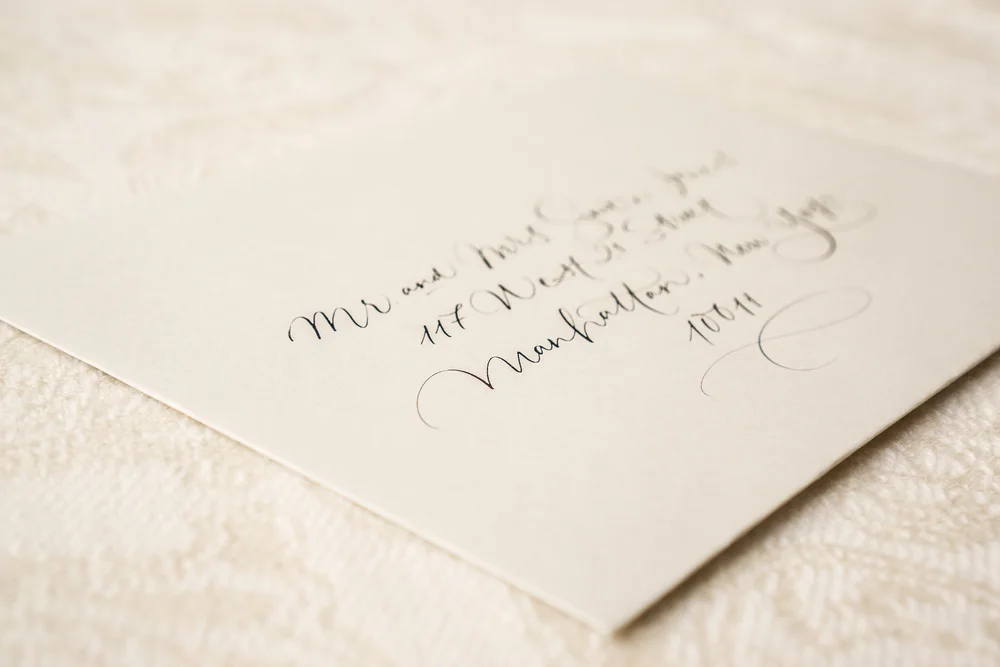 Mr. and Mrs
117 West 21 Street
Manhattan, New York
10011